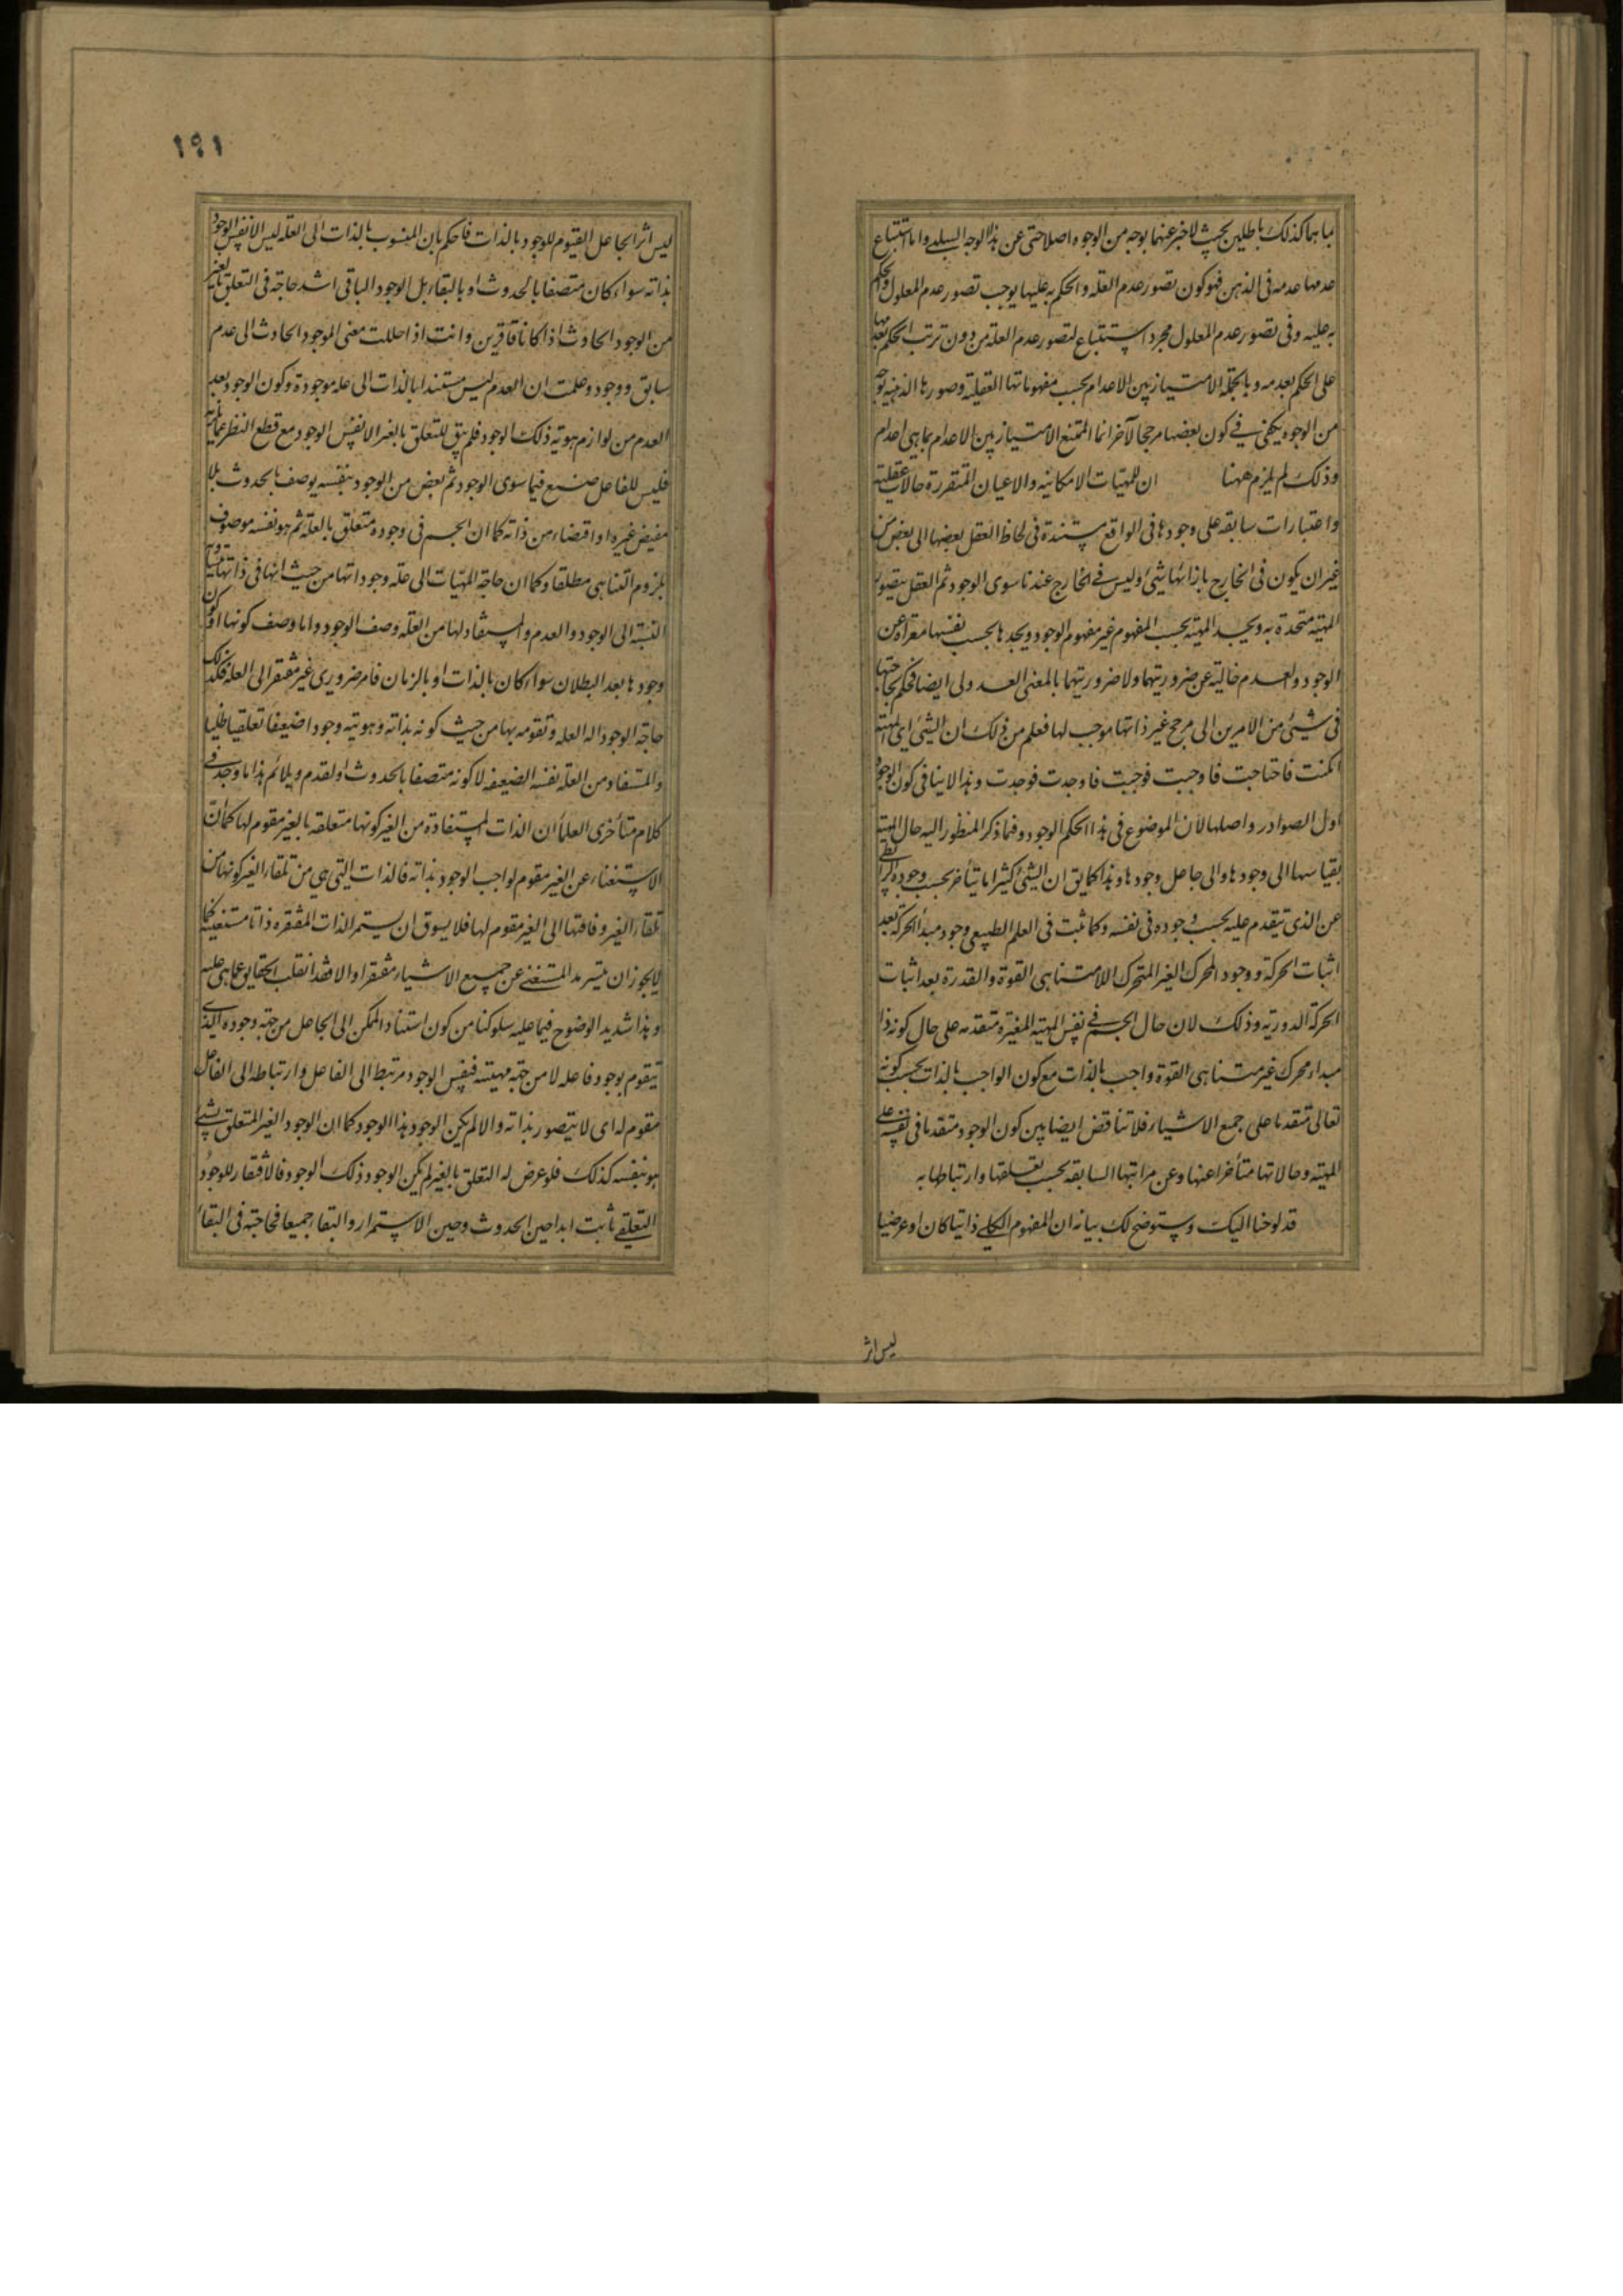 بما هما كذلك باطلين بحيث لا خبر عنهما بوجه من الوجوه اصلا حتى عن هذا الوجه السلبي واما استتباع
عدمها عدمه فى الذهن فهو كون تصور عدم العلة والحكم به عليها يوجب تصور عدم المعلول والحكم
به عليه وفى تصور عدم المعلول مجرد استتباع لتصور عدم العلة من دون ترتب الحكم بعدمها
على الحكم بعدمه وبالجملة الامتياز بين الاعدام بحسب مفهوماتها العقلية وصورها الذهنية بوجه
من الوجوه يكفى في كون بعضها مرجحا لآخر انما الممتنع الامتياز بين الاعدام بما هى اعدام
وذلك لم يلزم ههنا ان للمهيات الامكانيه والاعيان المتقررة حالات عقلية
واعتبارات سابقه على وجودها فى الواقع مستندة فى لحاظ العقل بعضها الى بعض من
غير ان يكون فى الخارج بازائها شئ وليس في الخارج عندنا سوى الوجود ثم العقل يتصور
المهية متحدة به ويجد المهية بحسب المفهوم غير مفهوم الوجود ويجدها بحسب نفسها معراة عن
الوجود والعدم خالية عن ضروريتهما ولا ضروريتهما بالمعنى العدولى ايضا فحكم بحاجتها
فى شئ من الامرين الى مرجح غير ذاتها موجب لها فعلم من ذلك ان الشئ اى المهية
امكنت فاحتاجت فاوجبت فوجبت فاوجدت فوجدت وهذا لا ينافى كون الوجود
اول الصوادر واصلها لان الموضوع فى هذا الحكم الوجود وفيما ذكر المنظور اليه حال المهية
بقياسها الى وجودها والى جاعل وجودها وهذا كما يق ان الشئ كثيرا ما يتأخر بحسب وجوده الرابطى
عن الذى يتقدم عليه بحسب وجوده فى نفسه وكما ثبت فى العلم الطبيعى وجود مبدأ الحركة بعد
اثبات الحركة ووجود المحرك الغير المتحرك اللامتناهى القوة والقدرة بعد اثبات
الحركة الدورية وذلك لان حال الجسم في نفس المهية المغيرة متقدمه على حال كونه ذا
مبدا محرك غير متناهى القوة واجب بالذات مع كون الواجب بالذات بحسب كونه
تعالى متقدما على جمع الاشياء فلا تناقض ايضا بين كون الوجود متقدما فى نفسه على
المهية وحالاتها متأخرا عنها وعن مراتبها السابقه بحسب تعلقها وارتباطها به
قد لوحنا اليك وستوضح لك بيانه ان المفهوم الكلي ذاتيا كان او عرضيا
ليس اثر
١٩١
ليس اثر الجاعل القيوم للوجود بالذات فاحكم بان المنسوب بالذات الى العله ليس الا نفس الوجود
بذاته سواء كان متصفا بالحدوث او بالبقاء بل الوجود الباقى اشد حاجة فى التعلق بالغير
من الوجود الحادث اذا كانا فاقرين وانت اذا حللت معنى الموجود الحادث الى عدم
سابق ووجود وعلمت ان العدم ليس مستندا بالذات الى علة موجودة وكون الوجود بعد
العدم من لوازم هوية ذلك الوجود فلم يبق للتعلق بالغير الا نفس الوجود مع قطع النظر عما يلزمه
فليس للفاعل صنع فيما سوى الوجود ثم بعض من الوجود بنفسه يوصف بالحدوث بلا
مفيض غيره او اقتضاء من ذاته كما ان الجسم فى وجوده متعلق بالعلة ثم هو نفسه موصوف
بلزوم التناهى مطلقا وكما ان حاجة المهيات الى علة وجوداتها من حيث انها فى ذاتها متساوية
النسبة الى الوجود والعدم والمستفاد لها من العلة وصف الوجود واما وصف كونها او كون
وجودها بعد البطلان سواء كان بالذات او بالزمان فامر ضرورى غير مفتقر الى العله فكذلك
حاجة الوجود اله العله وتقومه بها من حيث كونه بذاته وهويته وجودا ضعيفا تعلقيا ظليا
والمستفاد من العلة نفسه الضعيفه لا كونه متصفا بالحدوث او لقدم ويلائم هذا ما وجد في
كلام متأخرى العلماء ان الذات المستفادة من الغير كونها متعلقه بالغير مقوم لها كما ان
الاستغناء عن الغير مقوم لواجب الوجود بذاته فالذات التى هى من تلقاء الغير كونها من
تلقاء الغير وفاقتها الى الغير مقوم لها فلا يسوق ان يستمر الذات المفتقره ذاتا مستغنية كما
لا يجوز ان يتسرمد المستغني عن جميع الاشياء مفتقرا والا فقد انقلب الحقايق عما هى عليه
وهذا شديد الوضوح فيما عليه سلوكنا من كون استناد الممكن الى الجاعل من جهة وجوده الذى
يتقوم بوجود فاعله لا من جهة مهيته فنفس الوجود مرتبط الى الفاعل وارتباطه الى الفاعل
مقوم له اى لا يتصور بذاته والا لم يكن الوجود هذا الوجود كما ان الوجود الغير المتعلق بشئ
هو بنفسه كذلك فلو عرض له التعلق بالغير لم يكن الوجود ذلك الوجود فالافتقار للوجود
التعلقي ثابت ابدا حين الحدوث وحين الاستمرار والبقاء جميعا فحاجته فى البقاء